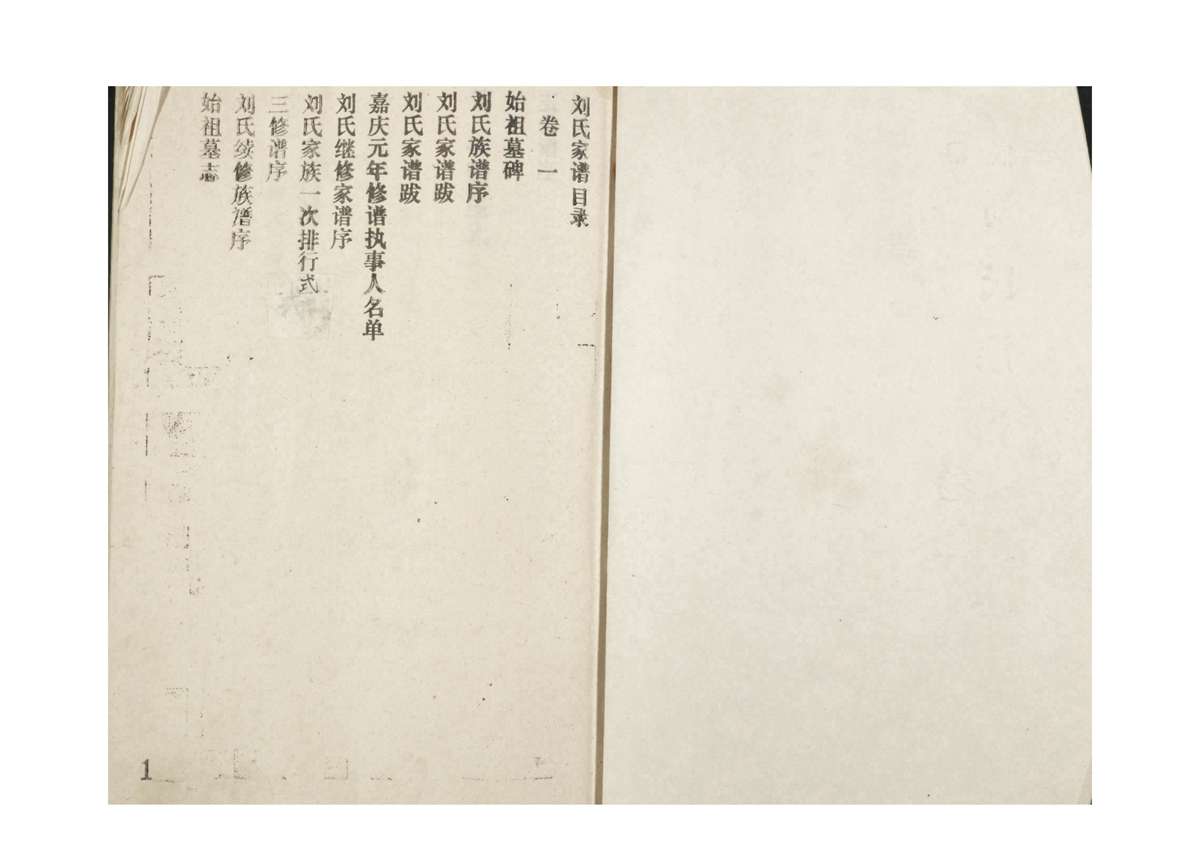 刘氏家谱目录
卷一
始祖墓碑
刘氏族谱序
刘氏家谱跋
刘氏家谱跋
嘉庆元年修谱执事人名单
刘氏继修家谱序
刘氏家族一次排行式
三修谱序
刘氏续修族谱序
始祖墓志
1